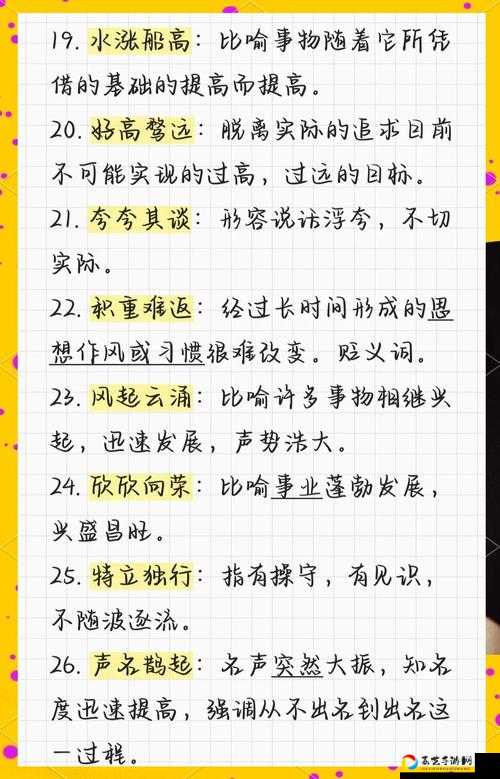 19. 水涨船高：比喻事物随着它所凭
借的基础的提高而提高。
20. 好高骛远：脱离实际的追求目前
不可能实现的过高，过远的目标。
21. 夸夸其谈：形容说话浮夸，不切
实际。
22. 积重难返：经过长时间形成的思
想作风或习惯很难改变。贬义词。
23. 风起云涌：比喻许多事物相继兴
起，迅速发展，声势浩大。
24. 欣欣向荣：比喻事业蓬勃发展，
兴盛昌旺。
25. 特立独行：指有操守，有见识，
不随波逐流。
26. 声名鹊起：名声突然大振，知名
度迅速提高，强调从不出名到出名这
一过程。